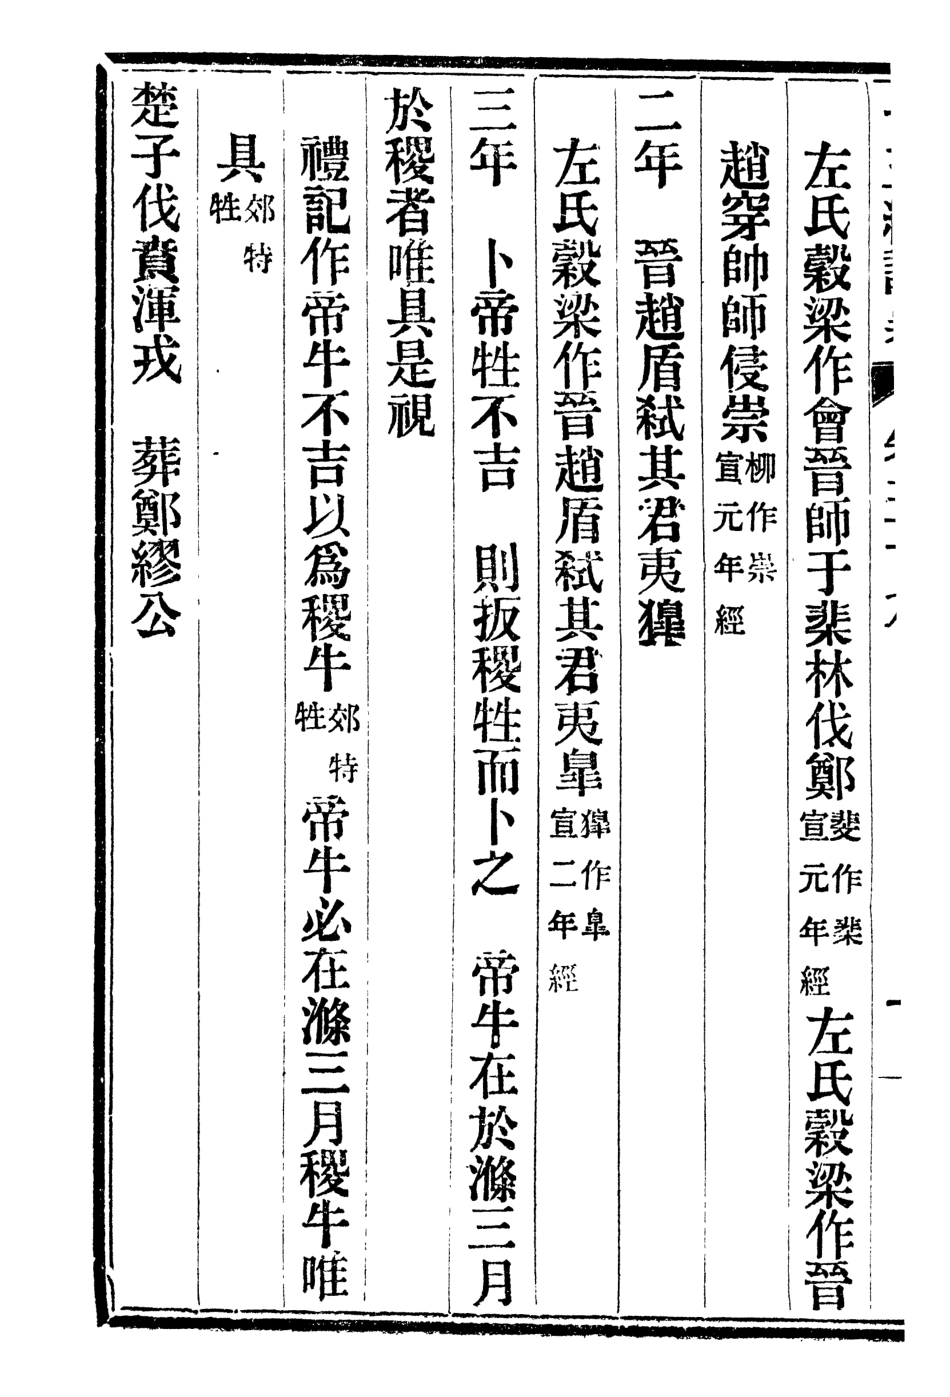 左氏穀梁作會晉師于棐林伐鄭斐作棐宣元年經左氏穀梁作晉
趙穿帥師侵崇柳作崇宣元年經
二年　晉趙盾弒其君夷獋
左氏穀梁作晉趙盾弒其君夷皐獋作皐宣二年經
三年　卜帝牲不吉　則扳稷牲而卜之　帝牛在於滌三月
於稷者唯具是視
禮記作帝牛不吉以爲稷牛郊特牲帝牛必在滌三月稷牛唯
具郊特牲
楚子伐賁渾戎　葬鄭繆公